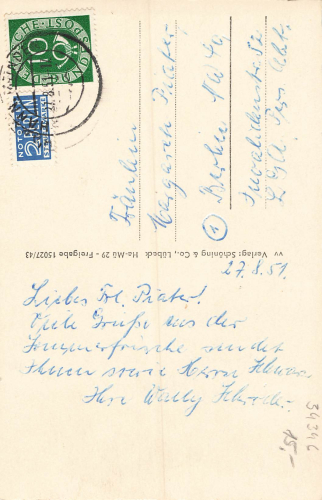 DEUTSCHE BUNDESPOST
10
NOTOPFER
2 BERLIN
Fräulein
Margarete
Berlin N 4
1
Invalidenstr. 52
vv Verlag: Schöning & Co., Lübeck Ha-Mü 29 - Freigabe 15027/43
27.8.51.
Liebes Frl.
Viele Grüße aus der
Sommerfrische sendet
Ihnen sowie Herrn
Ihr Wally
34346
15,-